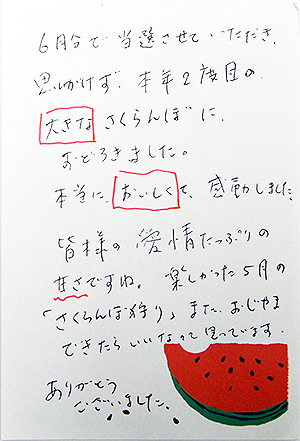 6月分で当選させていただき、
思いがけず、本年2度目の
大きなさくらんぼに、
おどろきました。
本当に、おいしくて、感動しました
皆様の愛情たっぷりの
甘さですね。楽しかった5月の
「さくらんぼ狩り」また、おじゃま
できたらいいなって思っています。
ありがとう
ございました。